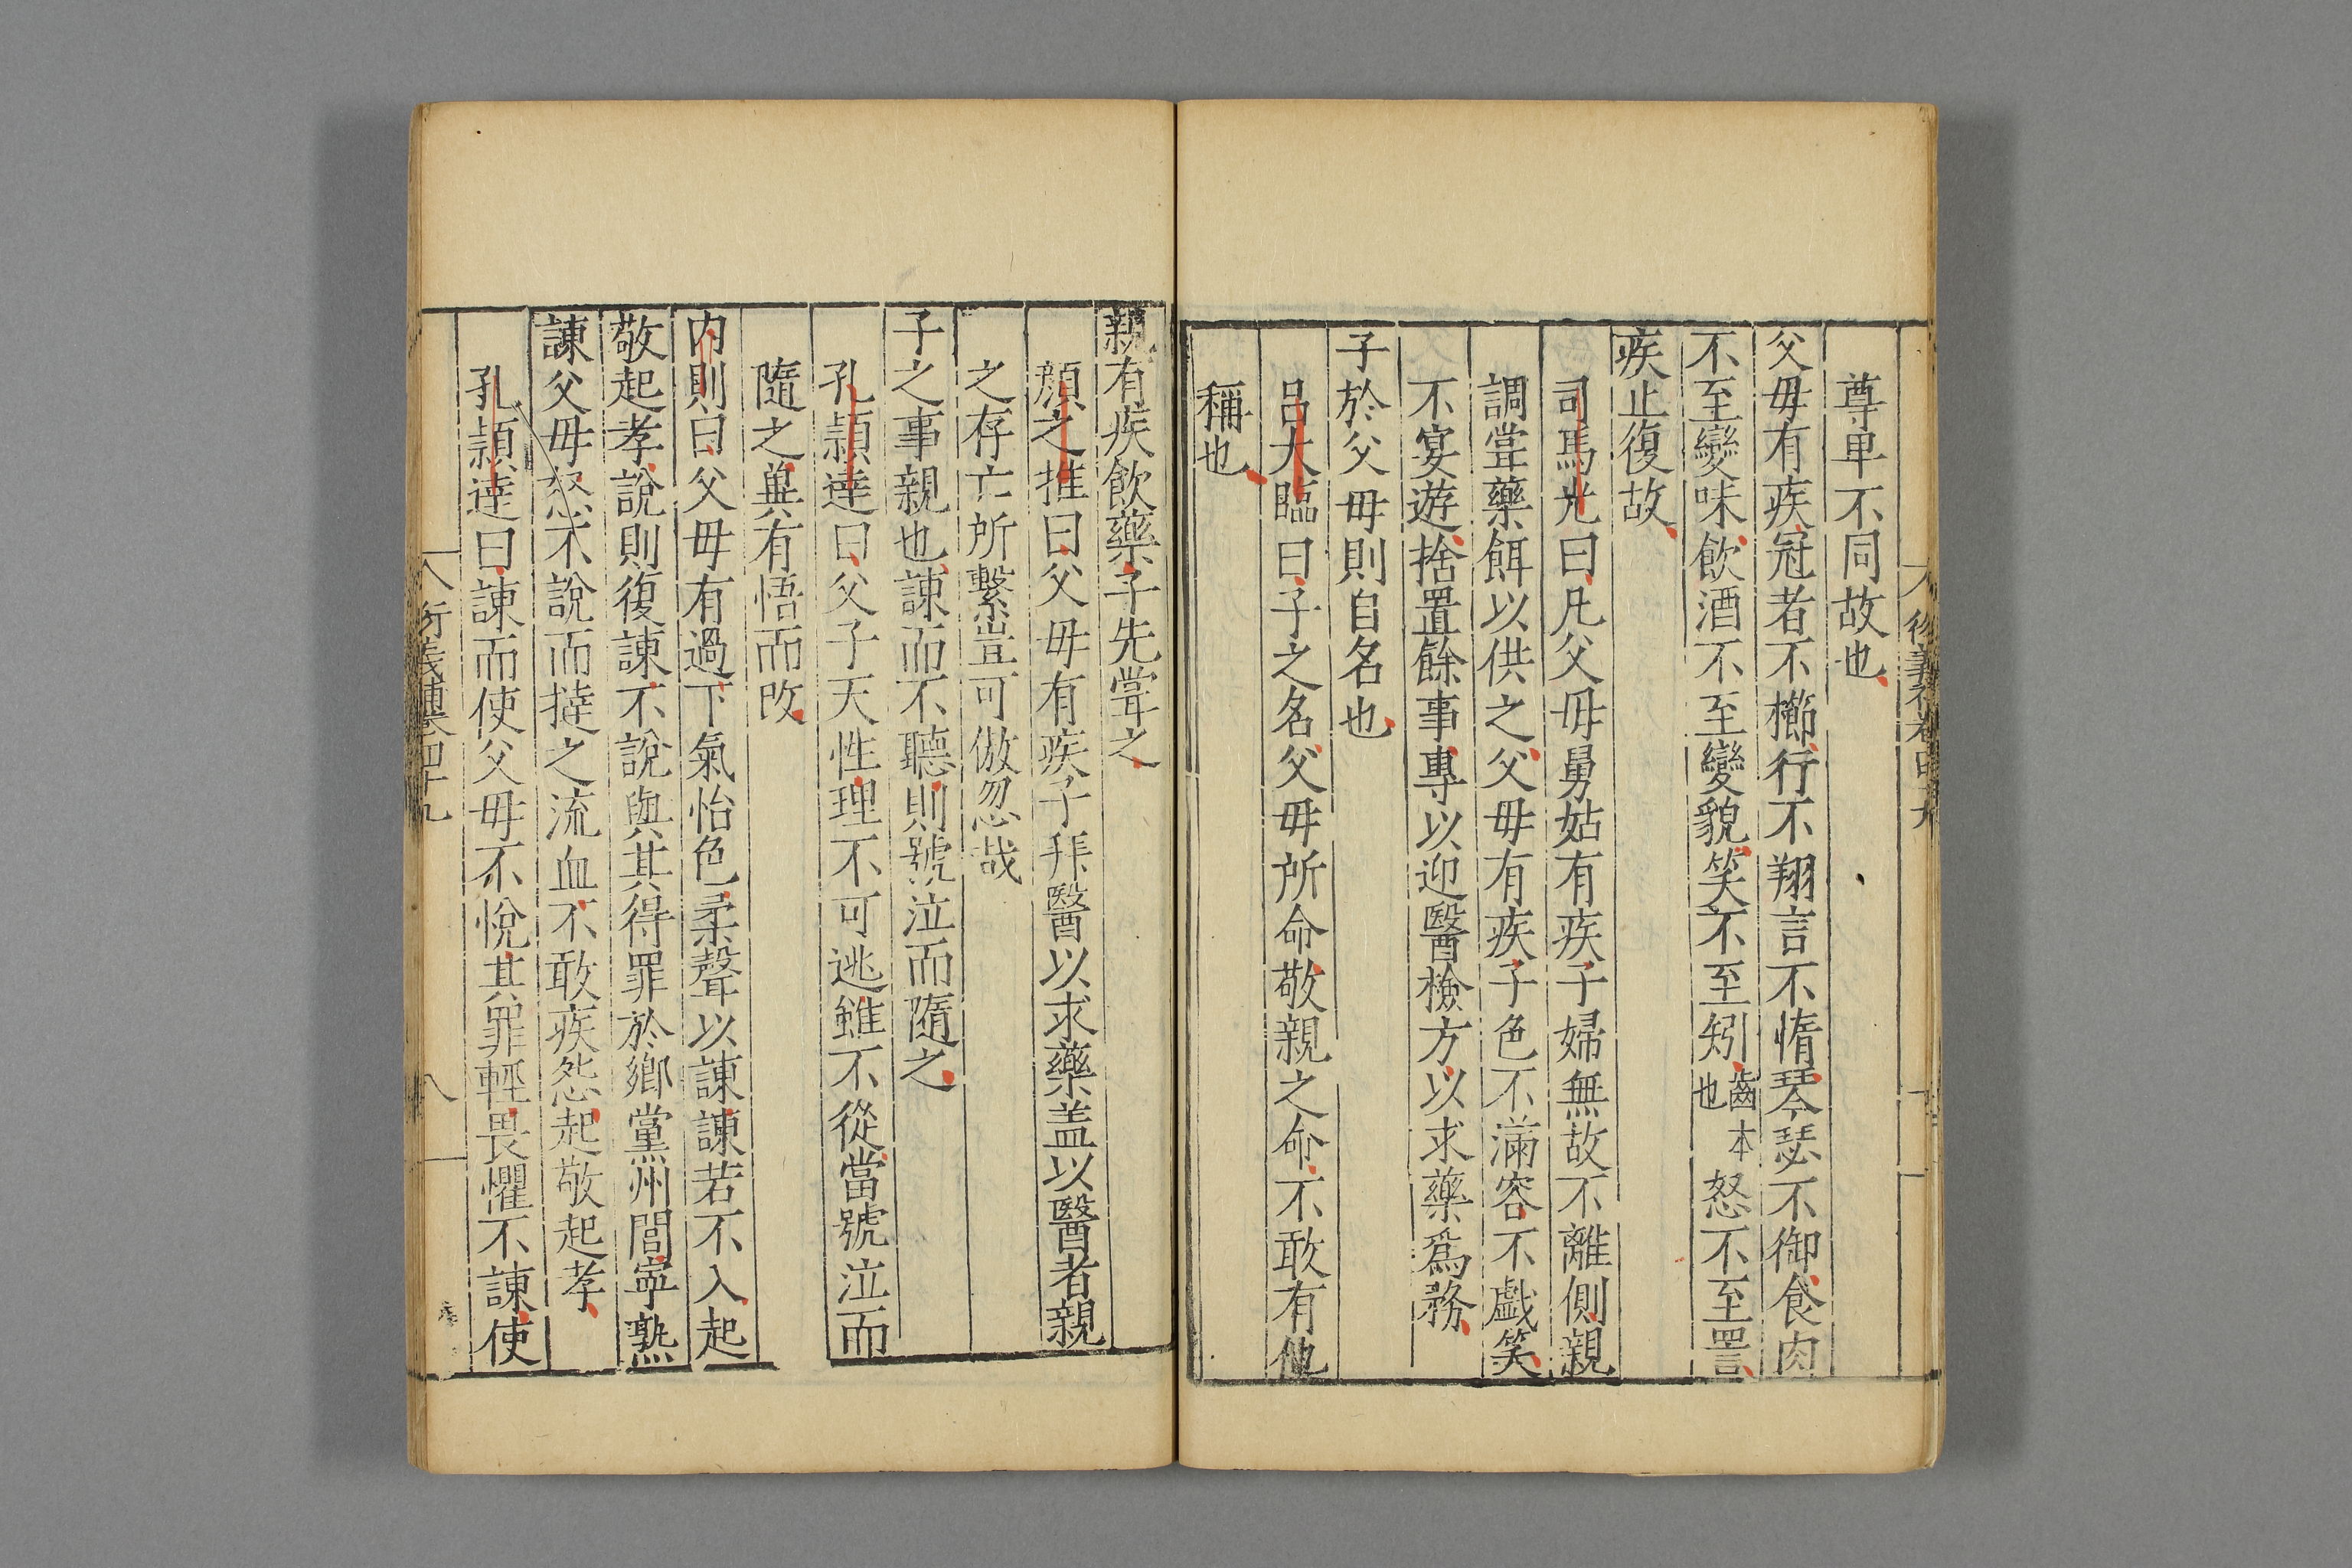 尊卑不同故也
父母有疾冠者不櫛行不翔言不惰琴瑟不御食肉
不至變味飲酒不至變貌笑不至矧齒本也怒不至詈
疾止復故
司馬光曰凡父母舅姑有疾子婦無故不離側親
調甞藥餌以供之父母有疾子色不滿容不戲笑
不宴遊捨置餘事專以迎醫檢方以求藥爲務
子於父母則自名也
呂大臨曰子之名父母所命敬親之命不敢有他
稱也
親有疾飲藥子先甞之
顏之推曰父母有疾子拜醫以求藥盖以醫者親
之存亡所繫豈可傲忽哉
子之事親也諫而不聽則號泣而隨之
孔頴達曰父子天性理不可逃雖不從當號泣而
隨之兾有悟而改
內則曰父母有過下氣怡色柔聲以諫諫若不入起
敬起孝說則復諫不說與其得罪於鄉黨州閭寧熟
諫父母怒不說而撻之流血不敢疾怨起敬起孝
孔頴達曰諫而使父母不悅其罪輕畏懼不諫使
八